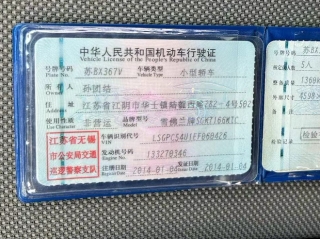 中华人民共和国机动车行驶证
Vehicle License of the People's Republic of China
号牌号码 苏BX367V 车辆类型 小型轿车
Plate No. Vehicle Type
所有人 孙团结
Owner
住址 江苏省江阴市华士镇陆
Address
使用性质 非营运 品牌型号 雪佛兰牌SGM7166MTC
Use Character Model
江苏省无锡
市公安局交通
巡逻警察支队
车辆识别代号 LSGPC54U1EF060426
VIN
发动机号码 133270346
Engine No.
注册日期 2014-01-04 发证日期 2014-01-04
Register Date Issue Date
号牌号码
5人
1360k
检验